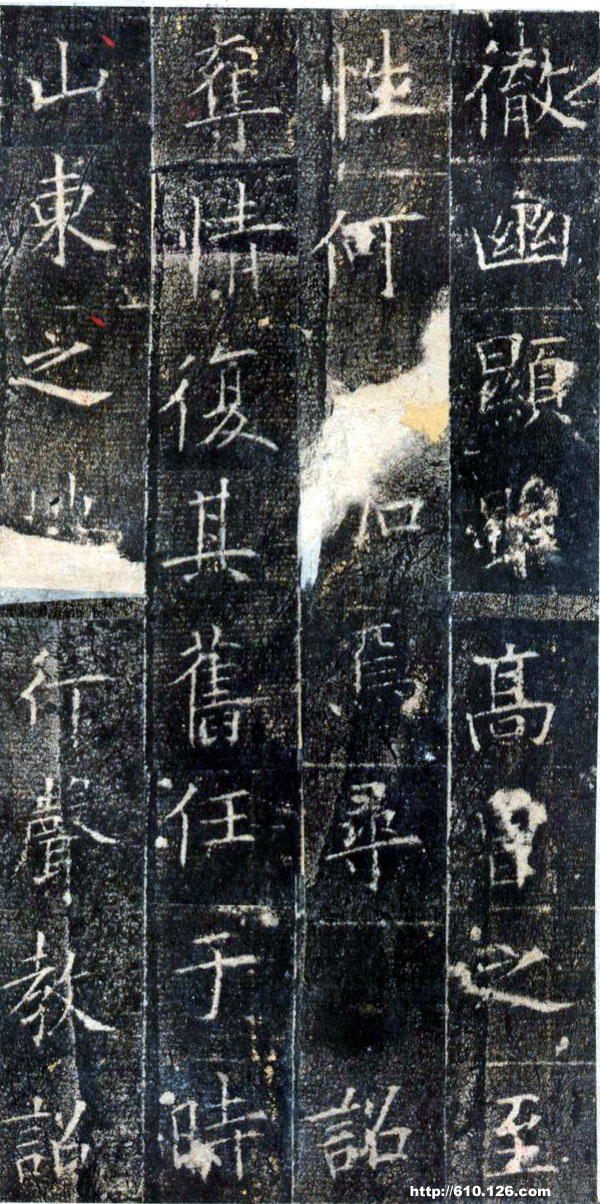 徹幽顯雖高曾之至
性何加焉尋詔
奪情復其舊任于時
山東之地行聲教詔
http://610.126.com